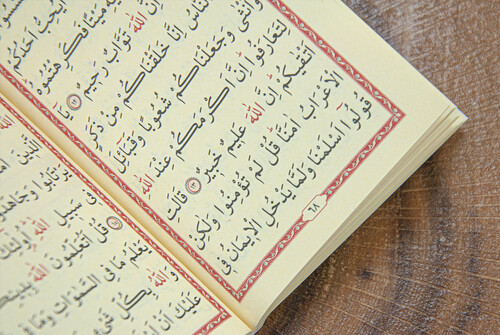 ايحب احدكم
ميتا فكرهتموه
ان الله تواب رحيم ﴿١٢﴾ يا
الناس انا خلقناكم من ذكر
وانثى وجعلناكم شعوبا وقبائل
لتعارفوا ان اكرمكم عند الله
اتقيكم ان الله عليم خبير ﴿١٣﴾ قالت
الاعراب امنا قل لم تؤمنوا ولكن
قولوا اسلمنا ولما يدخل الايمان في
٦٨
الذين
يرتابوا وجاهدوا
في سبيل الله اولئك
قل اتعلمون الله
يعلم ما في السموات وما
والله بكل شيء
عليك ان